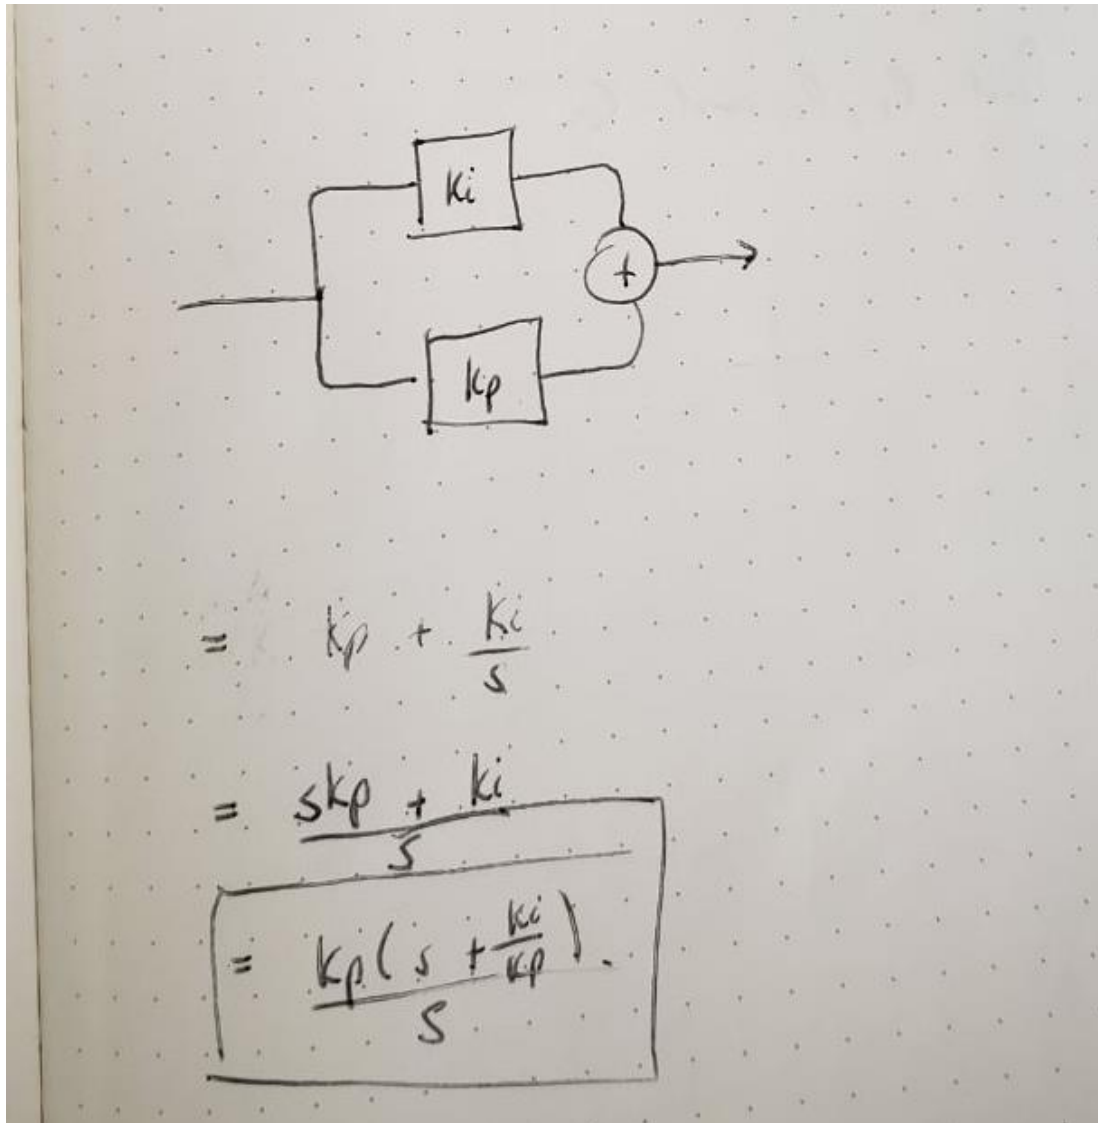 Ki
+
Kp
= Kp + Ki/s
= sKp + Ki / s
= Kp(s + Ki/Kp) / s.